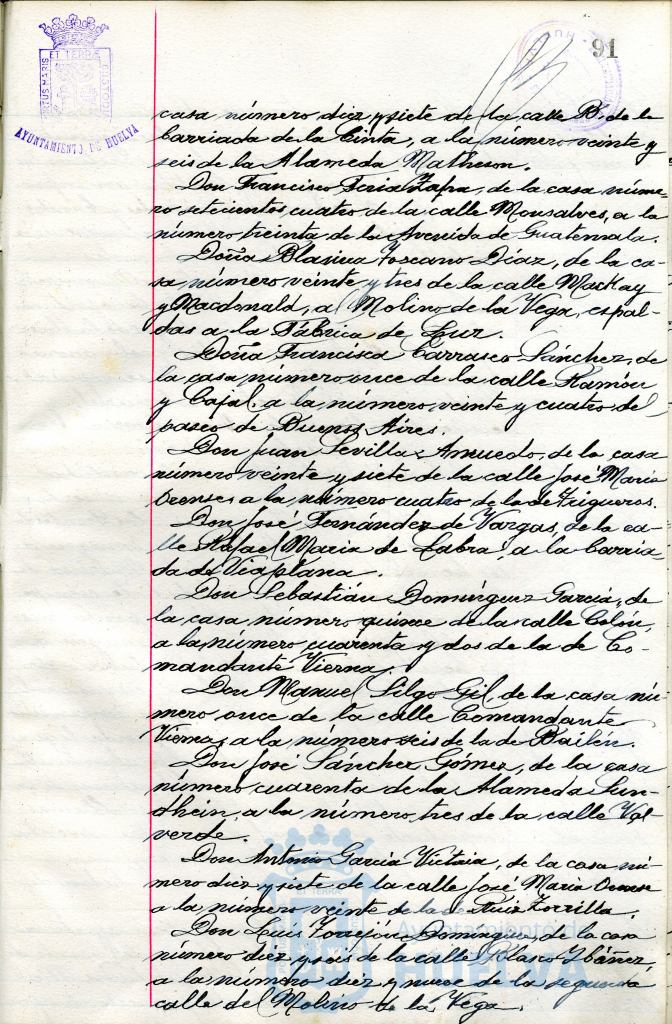 91
ET TERRÆ
AYUNTAMIENTO DE HUELVA
casa número diez y siete de la calle B. de la
barriada de la Cinta, a la número veinte y
seis de la Alameda Matheson.
Don Francisco Feria Zafra, de la casa núme-
ro setecientos cuatro de la calle Monsalves, a la
número treinta de la Avenida de Guatemala.
Doña Blanca Toscano Díaz, de la ca-
sa número veinte y tres de la calle Mackay
y Macdonald, a Molino de la Vega, espal-
das a la Fábrica de Luz.
Doña Francisca Carrasco Sánchez, de
la casa número once de la calle Ramón
y Cajal, a la número veinte y cuatro del
paseo de Buenos Aires.
Don Juan Sevilla Amuedo, de la casa
número veinte y siete de la calle José María
Orense, a la número cuatro de la de Trigueros.
Don José Fernández de Vargas, de la ca-
lle Rafael María de Labra, a la barria-
da de Viaplana.
Don Sebastián Domínguez García, de
la casa número quince de la calle Colón,
a la número cuarenta y dos de la de Co-
mandante Vierna.
Don Manuel Silgo Gil, de la casa nú-
mero once de la calle Comandante
Vierna, a la número seis de la de Bailén.
Don José Sánchez Gómez, de la casa
número cuarenta de la Alameda Sun-
dhein, a la número tres de la calle Val-
verde.
Don Antonio García Victoria, de la casa nú-
mero diez y siete de la calle José María Orense
a la número veinte de la de Ruiz Zorrilla.
Don Luis Torrejón, de la casa
número diez y seis de la calle Blasco Ibáñez,
a la número diez y nueve de la segunda
calle del Molino de la Vega.
Ayuntamiento de
HUELVA